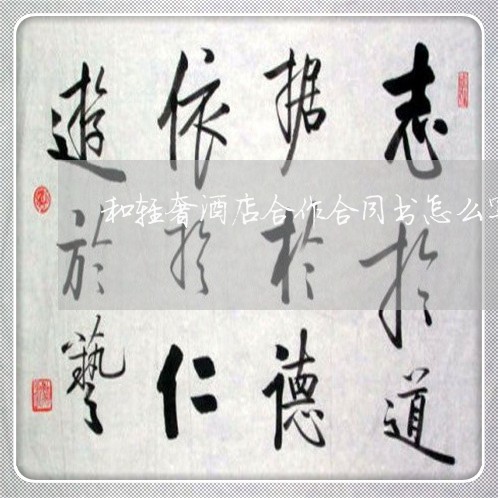 志於道
据於德
依於仁
遊於藝
和轻奢酒店合作合同书怎么